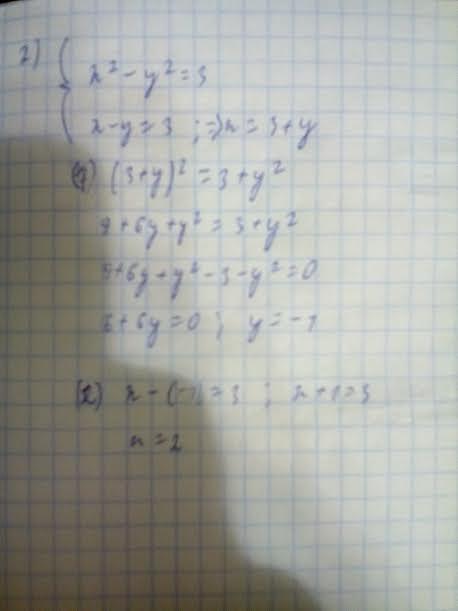 2) { x² - y² = 3
x - y = 3 ; => x = 3 + y
(1) (3+y)² = 3 + y²
9 + 6y + y² = 3 + y²
9 + 6y + y² - 3 - y² = 0
6 + 6y = 0 ; y = -1
(2) x - (-1) = 3 ; x + 1 = 3
x = 2